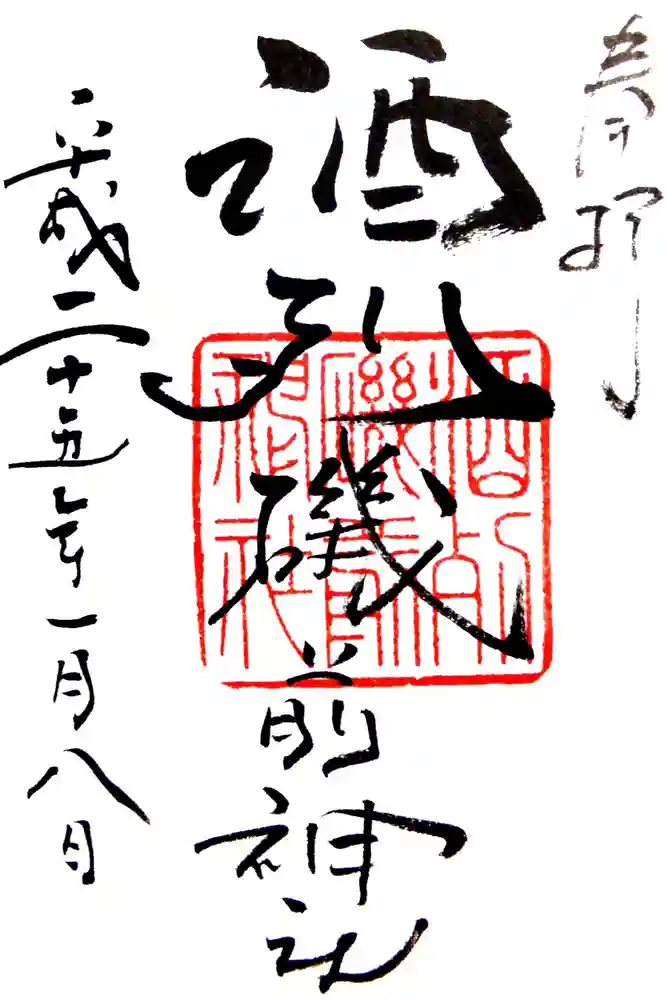 奉拝
酒列磯前神社
平成二十五年一月八日
酒列
磯前
神社